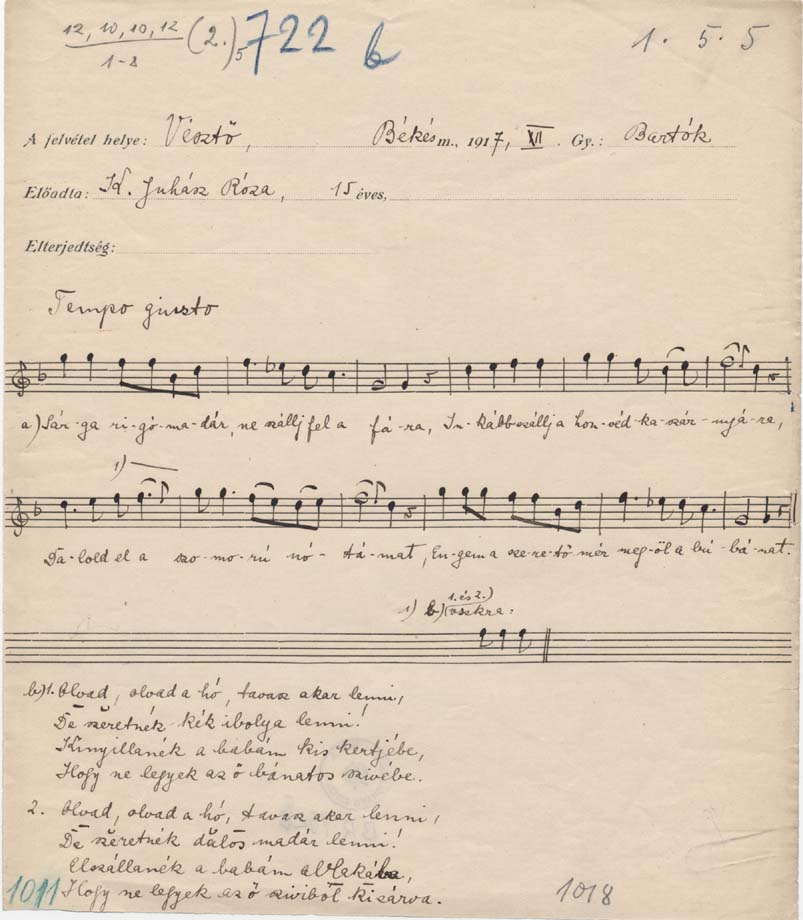 12, 10, 10, 12 (2.)5 722 b 1. 5. 5
1-8
A felvétel helye: Vésztő, Békés m., 1917, XII. Gy.: Bartók
Előadta: K. Juhász Róza, 15 éves,
Elterjedtség:
Tempo giusto
a) Sár-ga ri-gó-ma-dár, ne szállj fel a fá-ra, In-kább szállj a hon-véd-ka-szár-nyá-ra,
1)
Da-lold el a szo-mo-rú nó-tá-mat, En-gem a sze-re-tő mér meg-öl a bú-bá-nat.
1) b) (1. és 2.) vszkra:
b) 1. Olvad, olvad a hó, tavasz akar lenni,
De szeretnék kék ibolya lenni!
Kinyillanék a babám kis kertjébe,
Hogy ne legyek az ő bánatos szivébe.
2. Olvad, olvad a hó, tavasz akar lenni,
De szeretnék dalos madár lenni!
Elszállanék a babám ablakába,
Hogy ne legyek az ő sziviből kizárva.
1011 1018